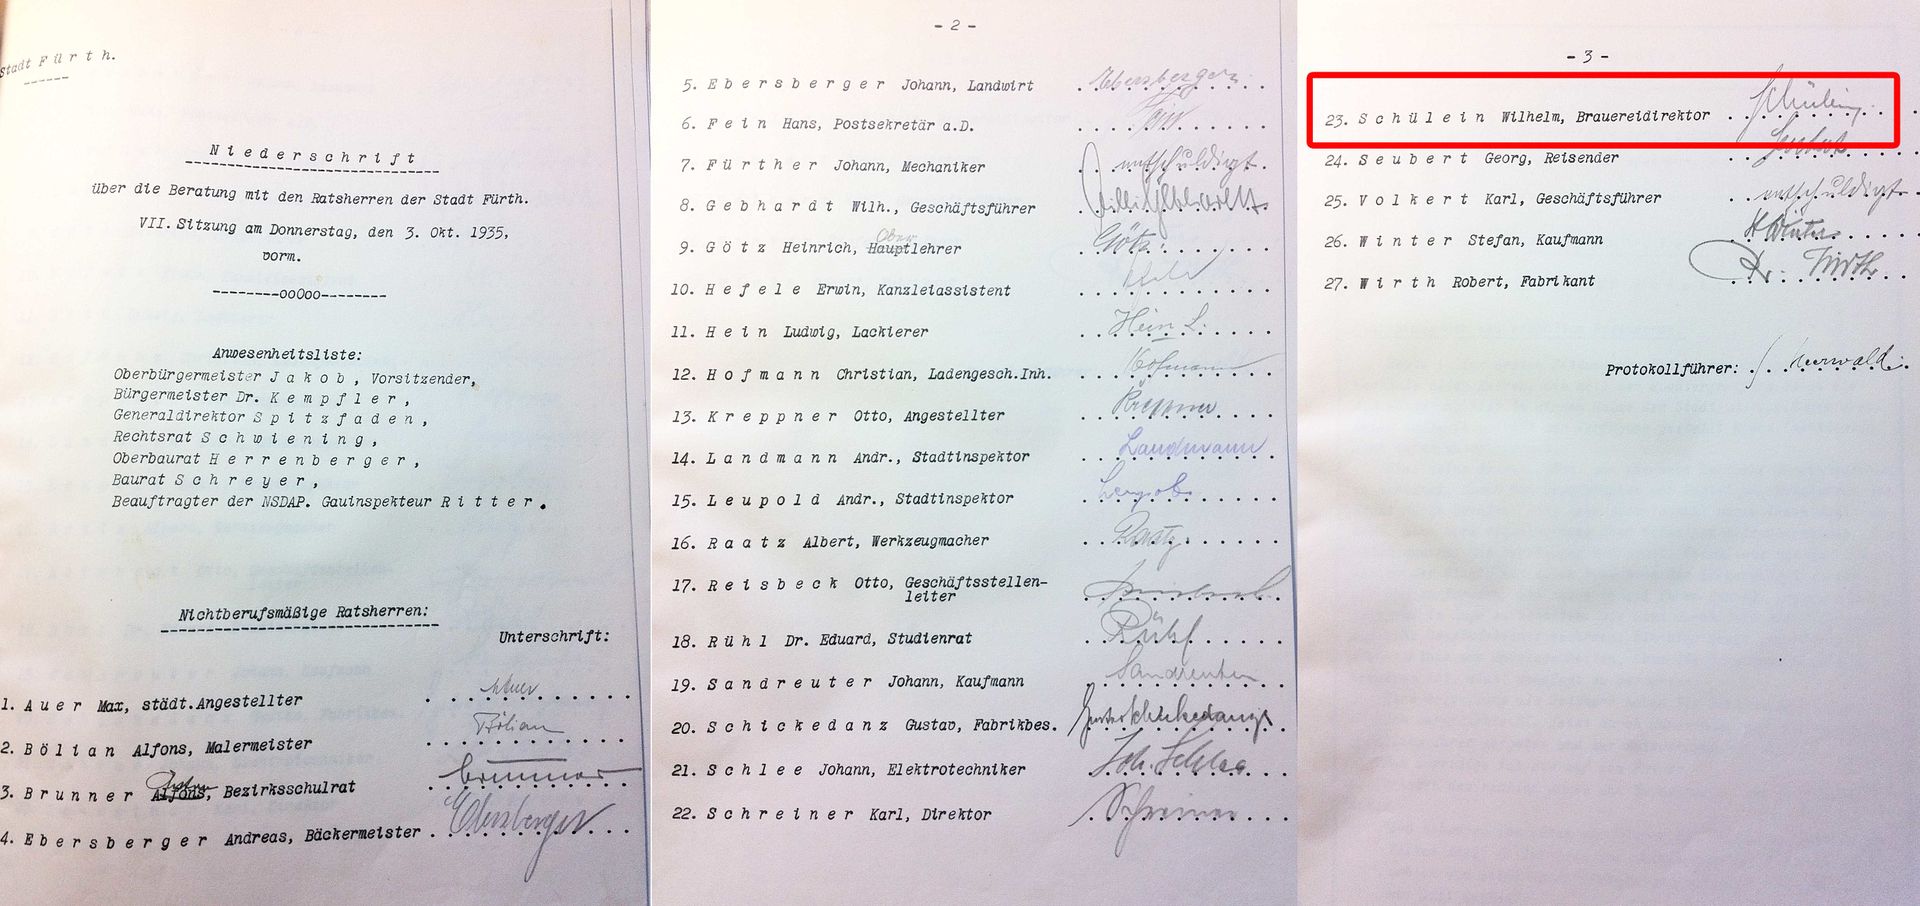 Stadt Fürth.
Niederschrift
über die Beratung mit den Ratsherren der Stadt Fürth.
VII. Sitzung am Donnerstag, den 3. Okt. 1935,
vorm.
--------ooOoo--------
Anwesenheitsliste:
Oberbürgermeister Jakob, Vorsitzender,
Bürgermeister Dr. Kempfler,
Generaldirektor Spitzfaden,
Rechtsrat Schwiening,
Oberbaurat Herrenberger,
Baurat Schreyer,
Beauftragter der NSDAP. Gauinspekteur Ritter.
Nichtberufsmäßige Ratsherren:
Unterschrift:
1. Auer Max, städt.Angestellter Auer
2. Bölian Alfons, Malermeister Bölian
3. Brunner Alfons, Bezirksschulrat Brunner
4. Ebersberger Andreas, Bäckermeister Ebersberger
- 2 -
5. Ebersberger Johann, Landwirt Ebersberger
6. Fein Hans, Postsekretär a.D. Fein
7. Fürther Johann, Mechaniker entschuldigt
8. Gebhardt Wilh., Geschäftsführer
9. Götz Heinrich, Hauptlehrer Ober Götz
10. Hefele Erwin, Kanzleiassistent
11. Hein Ludwig, Lackierer Hein L.
12. Hofmann Christian, Ladengesch.Inh. Hofmann
13. Kreppner Otto, Angestellter Kreppner
14. Landmann Andr., Stadtinspektor Landmann
15. Leupold Andr., Stadtinspektor
16. Raatz Albert, Werkzeugmacher Raatz
17. Reisbeck Otto, Geschäftsstellen-
leiter
18. Rühl Dr. Eduard, Studienrat Rühl
19. Sandreuter Johann, Kaufmann Sandreuter
20. Schickedanz Gustav, Fabrikbes. Gustav Schickedanz
21. Schlee Johann, Elektrotechniker Joh. Schlee
22. Schreiner Karl, Direktor Schreiner
- 3 -
23. Schülein Wilhelm, Brauereidirektor Schülein
24. Seubert Georg, Reisender Seubert
25. Volkert Karl, Geschäftsführer entschuldigt
26. Winter Stefan, Kaufmann Winter
27. Wirth Robert, Fabrikant Wirth
Protokollführer: